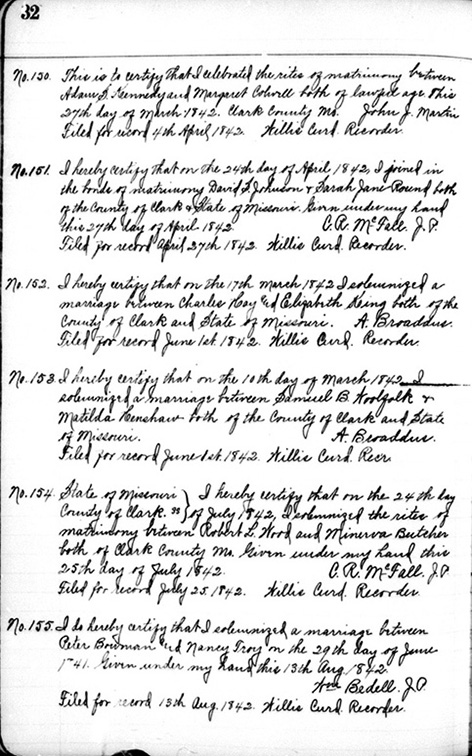 32
No. 130. This is to certify that I celebrated the rites of matrimony between
Adam S. Kennedy and Margaret Colwell both of lawful age this
27th day of March 1842. Clark County Mo. John J. Martin
Filed for record 4th April, 1842. Willis Curd Recorder.
No. 151. I hereby certify that on the 24th day of April 1842, I joined in
the bonds of matrimony David L. Johnson & Sarah Jane Round both
of the County of Clark & State of Missouri. Given under my hand
this 27th day of April 1842. C. R. McFall. J.P.
Filed for record April 27th 1842. Willis Curd. Recorder.
No. 152. I hereby certify that on the 17th March 1842 I solemnized a
marriage between Charles Hay and Elizabeth King both of the
County of Clark and State of Missouri. A. Broaddus.
Filed for record June 1st. 1842. Willis Curd. Recorder.
No. 153 I hereby certify that on the 10th day of March 1842 I
solemnized a marriage between Samuel B Woolfolk &
Matilda Henshaw both of the County of Clark and State
of Missouri. A. Broaddus.
Filed for record June 1st. 1842. Willis Curd Recr.
No. 154. State of Missouri } I hereby certify that on the 24th day
County of Clark. ss } of July 1842, I solemnized the rites of
matrimony btween Robert L. Wood and Minerva Butcher
both of Clark County Mo. Given under my hand this
25th day of July 1842. C. R. McFall. J.P.
Filed for record July 25. 1842. Willis Curd. Recorder
No. 155. I do hereby certify that I solemnized a marriage between
Peter Bowman and Nancy Troy on the 29th day of June
1841. Given under my hand this 13th Aug 1842
Wm Bedell. J.P.
Filed for record 13th Aug. 1842. Willis Curd. Recorder.